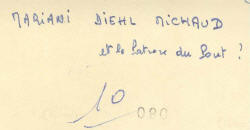 MARIANI DIEHL MICHAUD
et le Patron du Pont ?
10
080